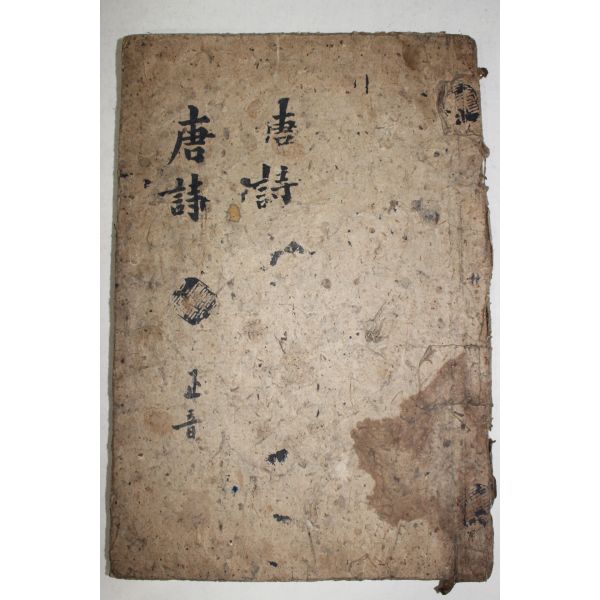 唐詩
唐詩
正音